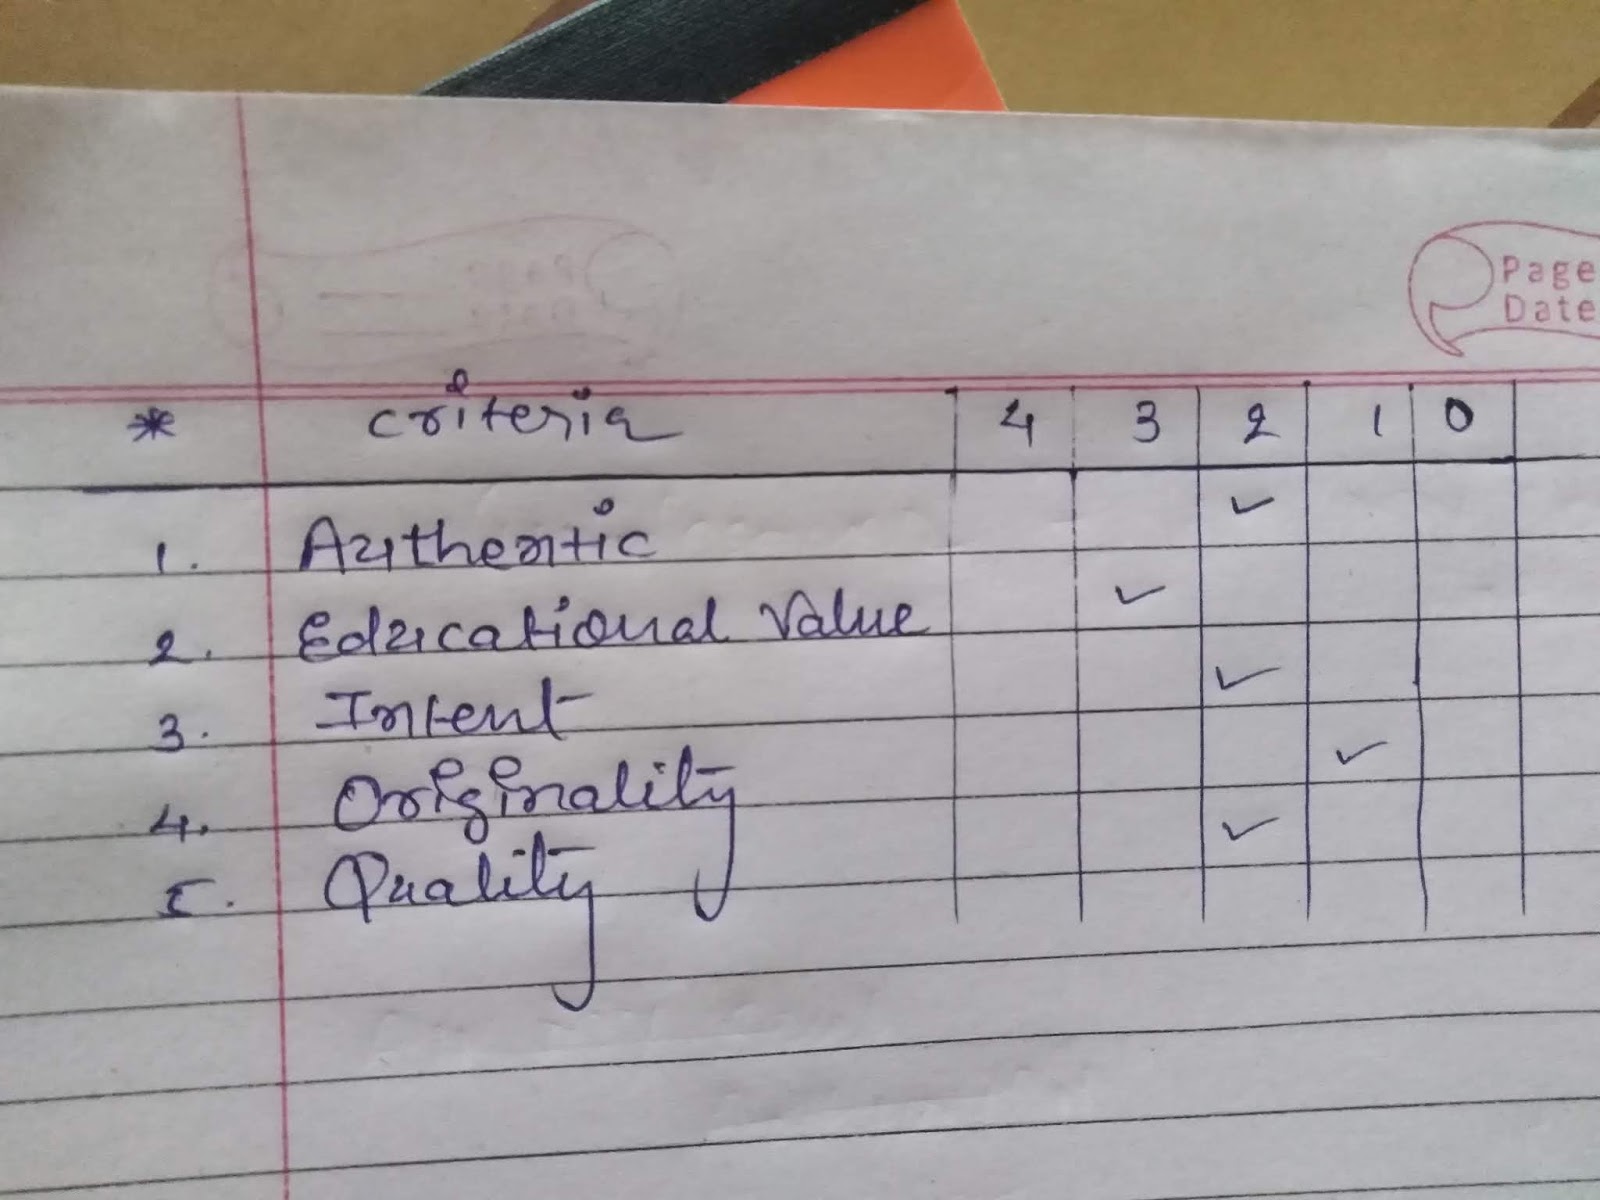 Page
Date
* Criteria 4 3 2 1 0
1. Authentic ✓
2. Educational Value ✓
3. Intent ✓
4. Originality ✓
5. Quality ✓